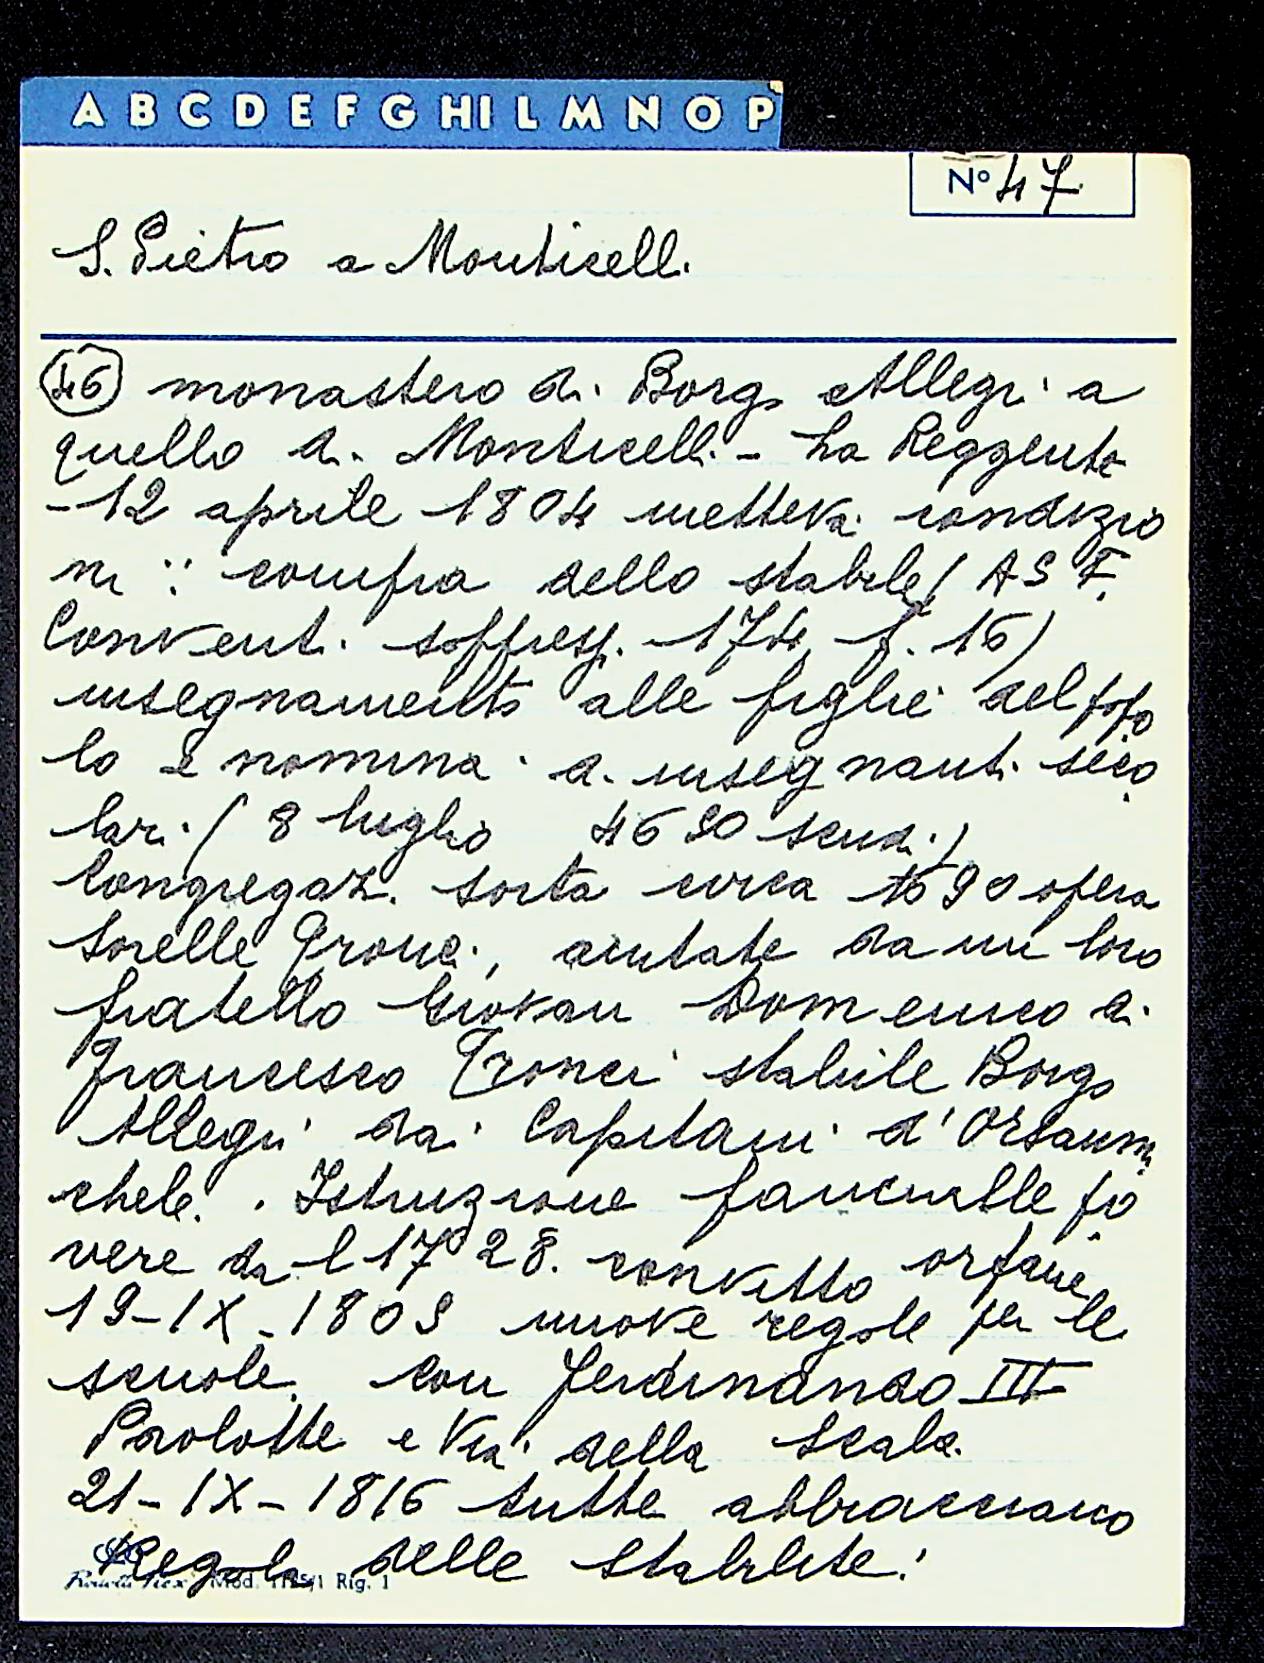 A B C D E F G HI L M N O P
N° 47
S. Pietro a Monticelli
46 monastero di Borgo Allegri a
quello di Monticelli - La Reggente
-12 aprile 1804 metteva condizio
ni : compra dello stabile (ASF.
Convent. soppresj. 174, f. 16)
insegnamento alle figlie del popo
lo e nomina di insegnanti seco
lari (8 luglio 4690 scudi)
Congregaz. sorta circa 1690 opera
Sorelle Tronci, aiutate da un loro
fratello Giovan Domenico di
Francesco Tronci stabile Borgo
Allegri dai Capitani d'Orsanmi
chele. Istruzione fanciulle po
vere dal 1728. convitto orfane
19-IX-1809 nuove regole per le
scuole. Con Ferdinando III
Paolotte e Via della Scala
21-IX-1816 tutte abbracciano
Regola delle Stabilite.
Mod. Rig. 1